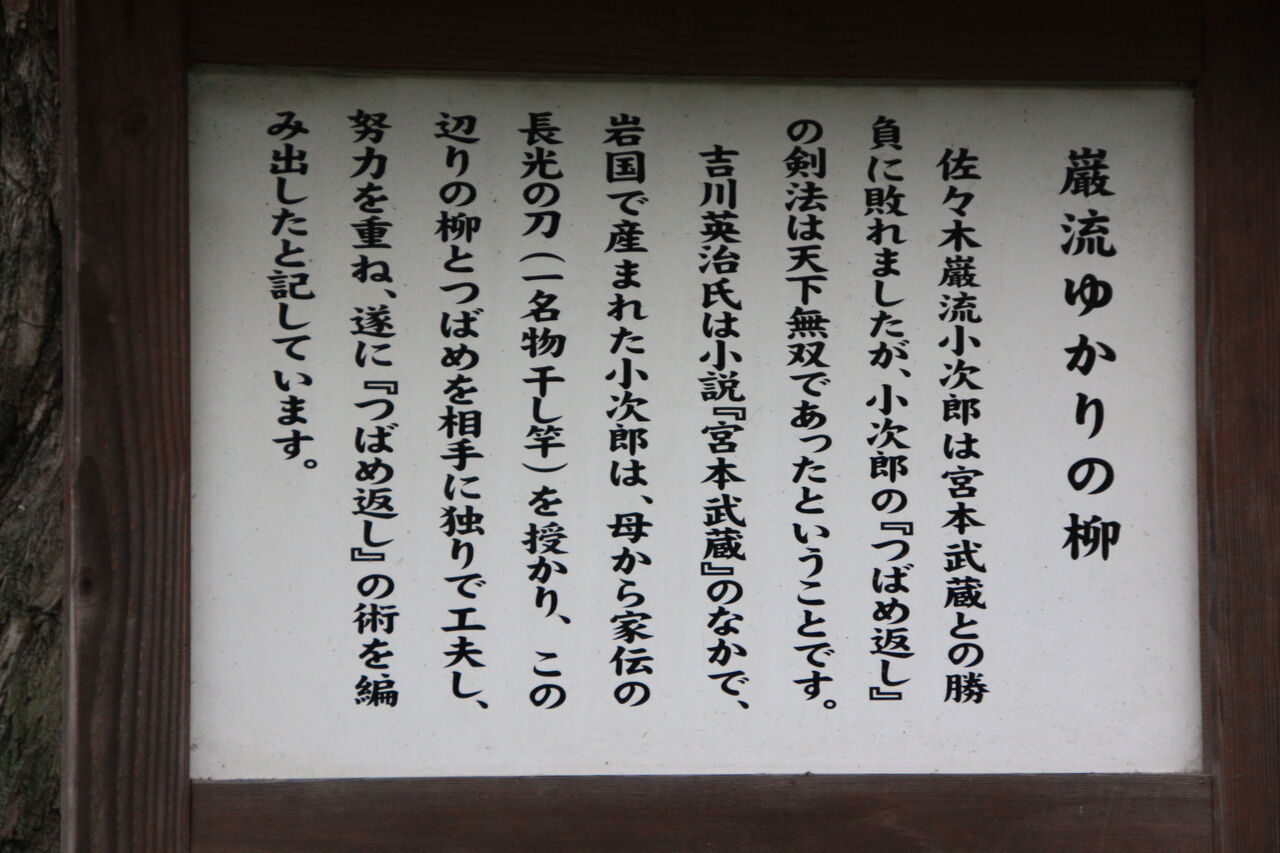 巌流ゆかりの柳
佐々木巌流小次郎は宮本武蔵との勝
負に敗れましたが、小次郎の『つばめ返し』
の剣法は天下無双であったということです。
吉川英治氏は小説『宮本武蔵』のなかで、
岩国で産まれた小次郎は、母から家伝の
長光の刀(一名物干し竿)を授かり、この
辺りの柳とつばめを相手に独りで工夫し、
努力を重ね、遂に『つばめ返し』の術を編
み出したと記しています。